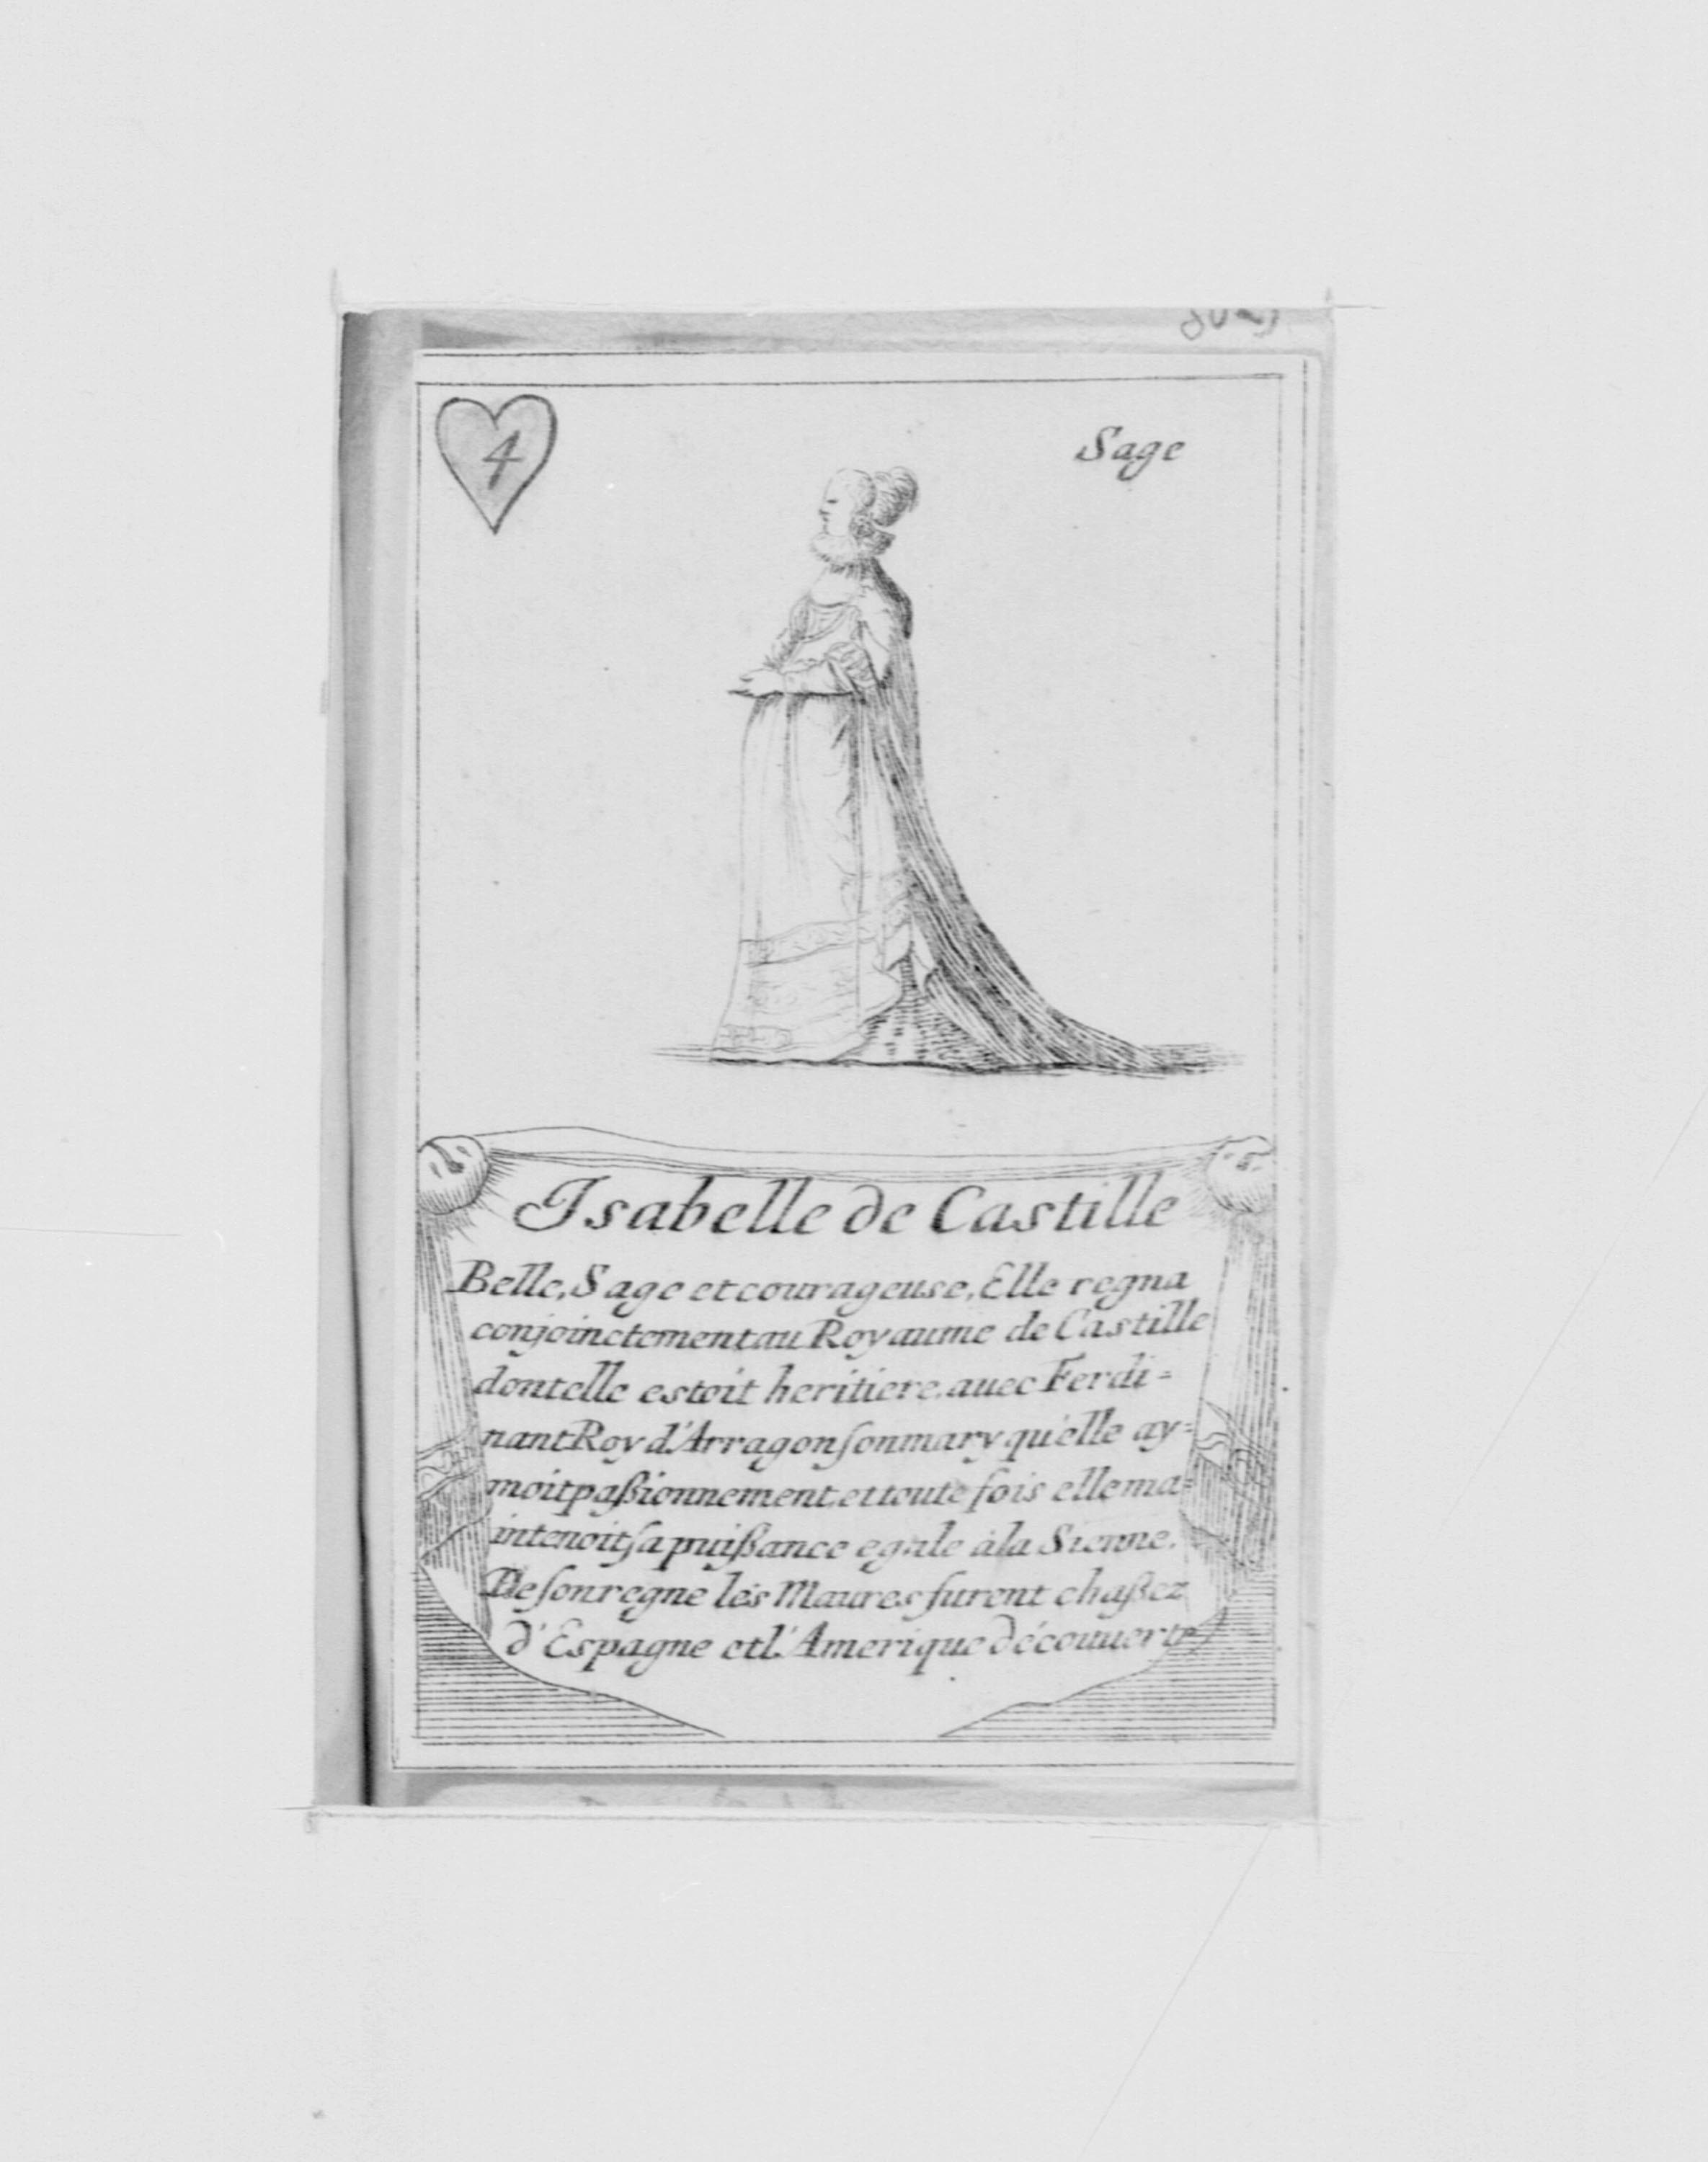 4
Sage
Isabelle de Castille
Belle, Sage et courageuse, Elle regna
conjoinctement au Royaume de Castille
dont elle estoit heritiere, avec Ferdi=
nant Roy d'Arragon ſon mary qu'elle ay=
moit paßionnement, et toute fois elle ma=
intenoit ſa puißance egale à la Sienne.
De ſon regne les Maures furent chaßez
d'Espagne et l'Amerique découverte